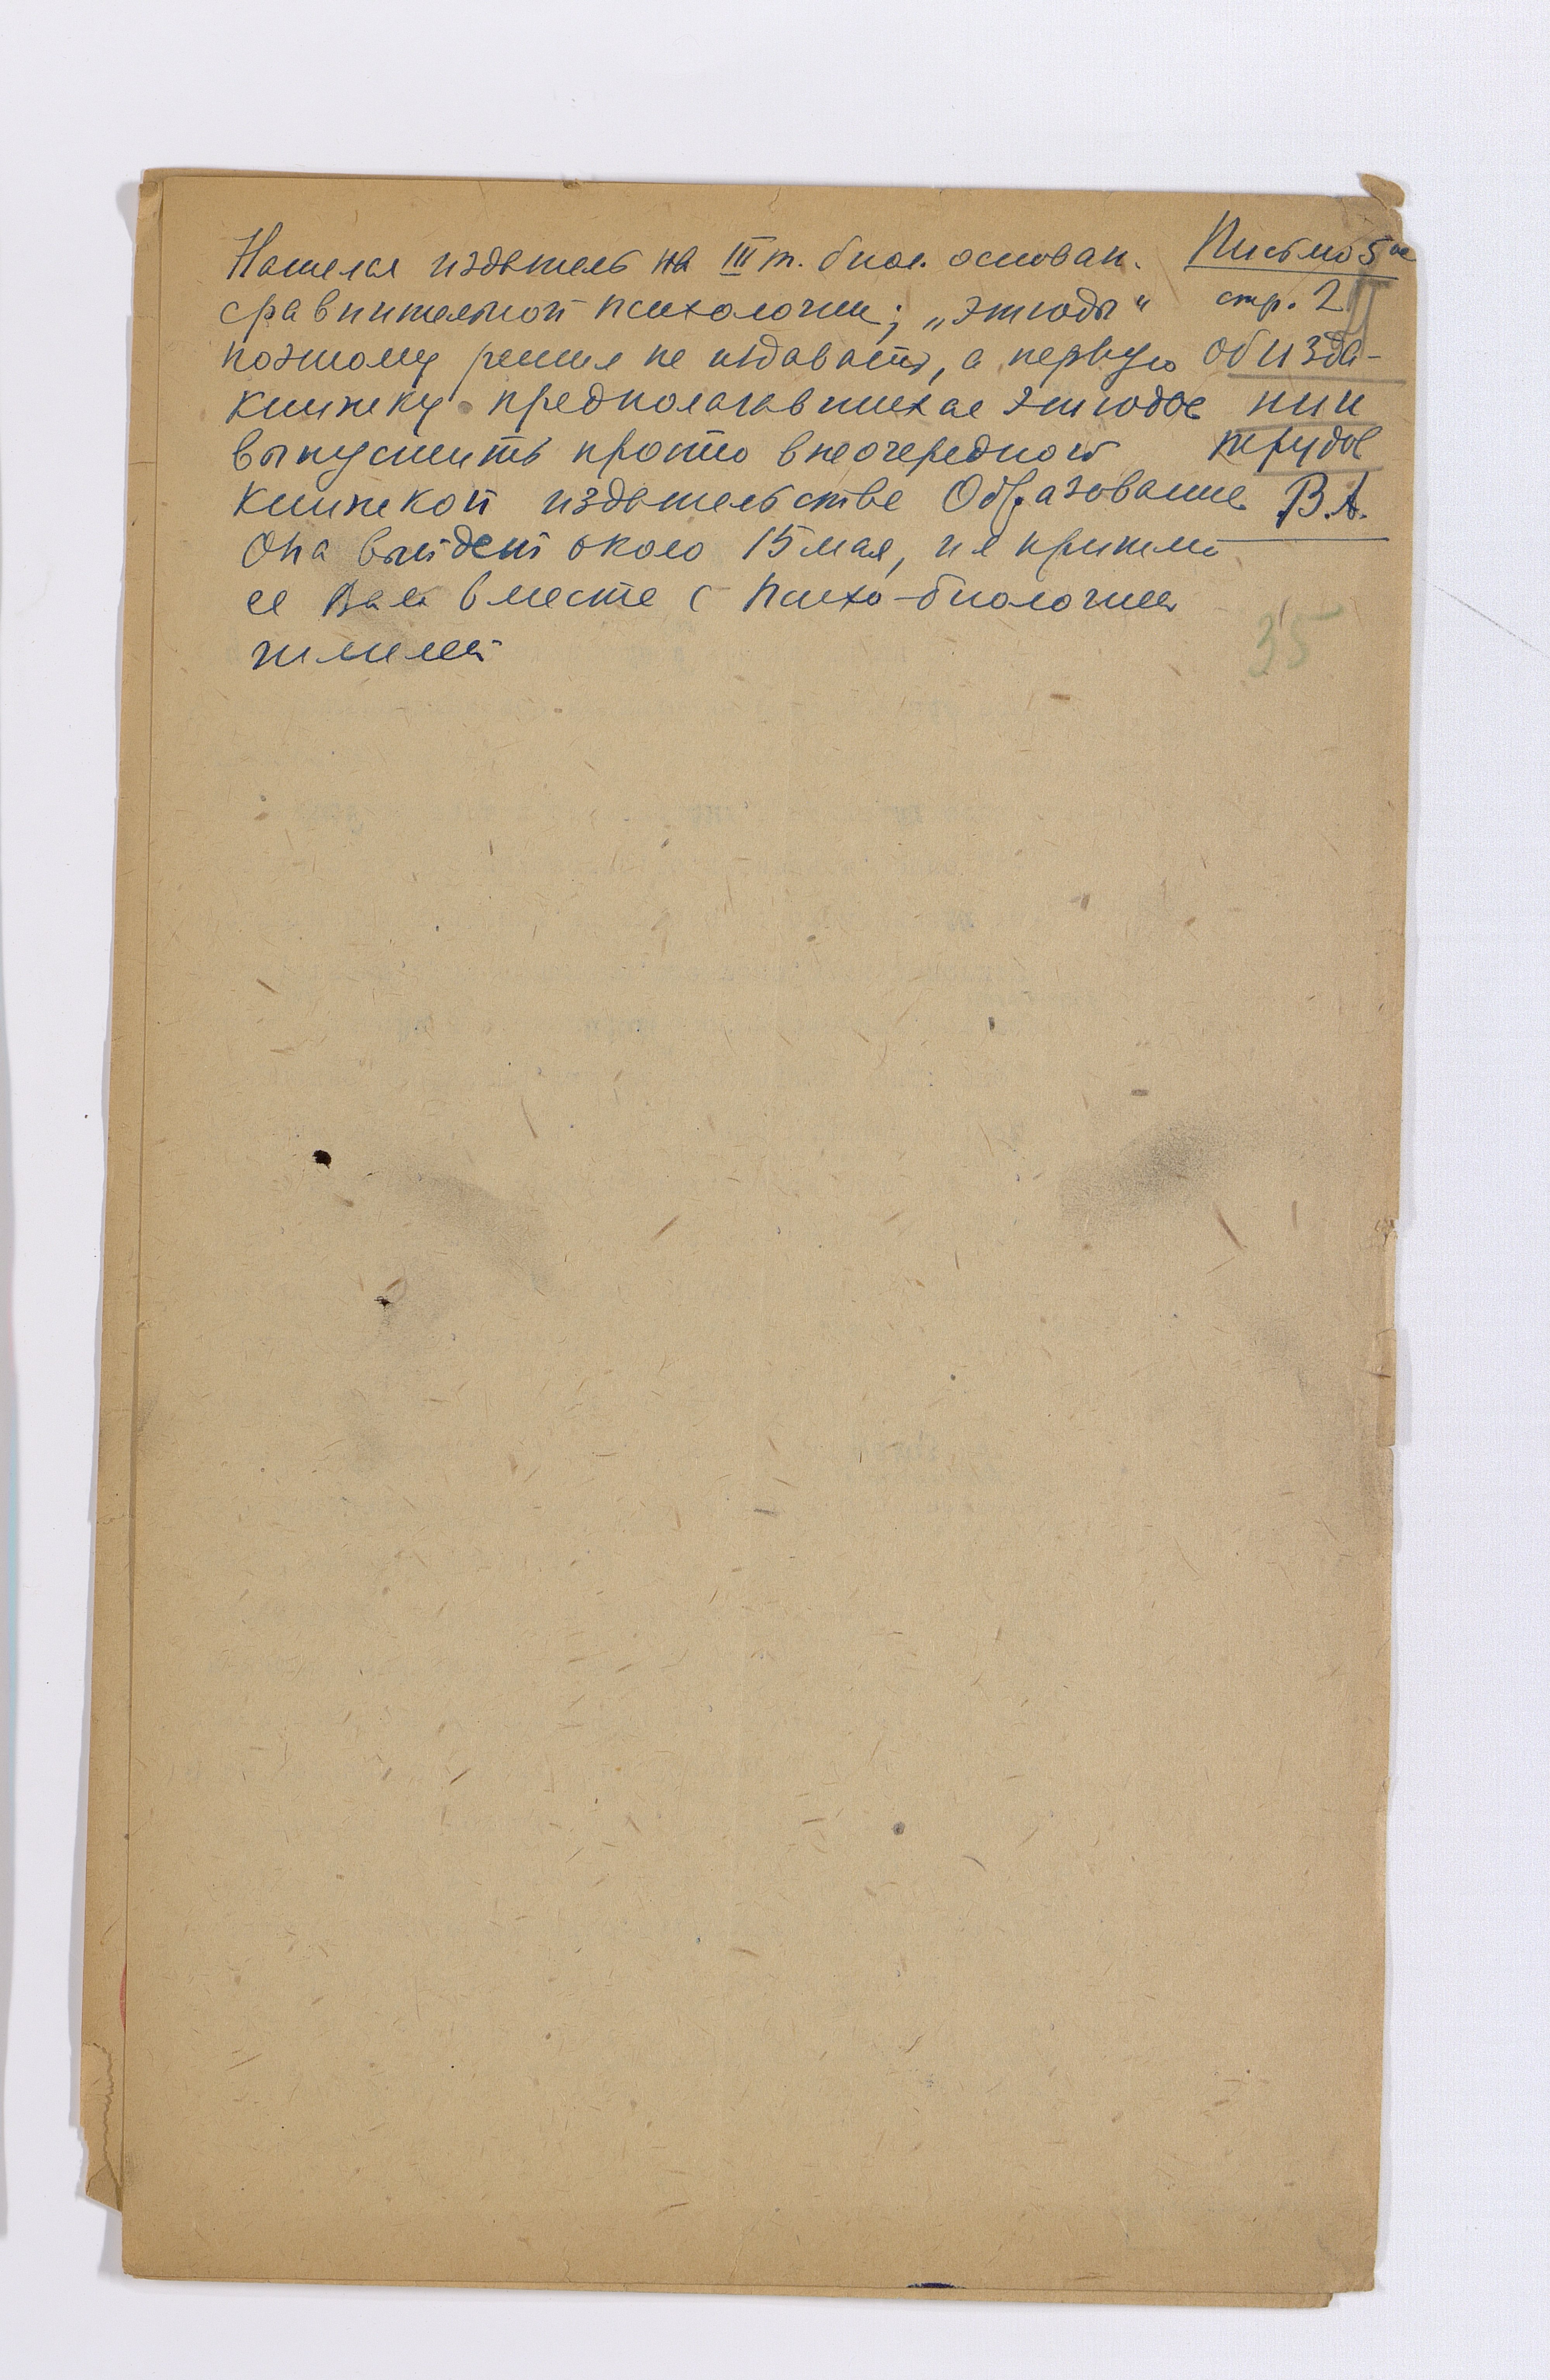 Нашелся издатель на III т. биол. основан.
сравнительной психологии; „этюды“
поэтому решил не издавать, а первую
книжку предполагавшихся этюдов
выпустить просто внеочередной
книжкой издательстве Образование.
Она выйдет около 15 мая, и я пришлю
ее Вам вместе с Психо-биологией
Письмо 5ое
стр. 2
об изда-
нии
трудов
В.А.
35